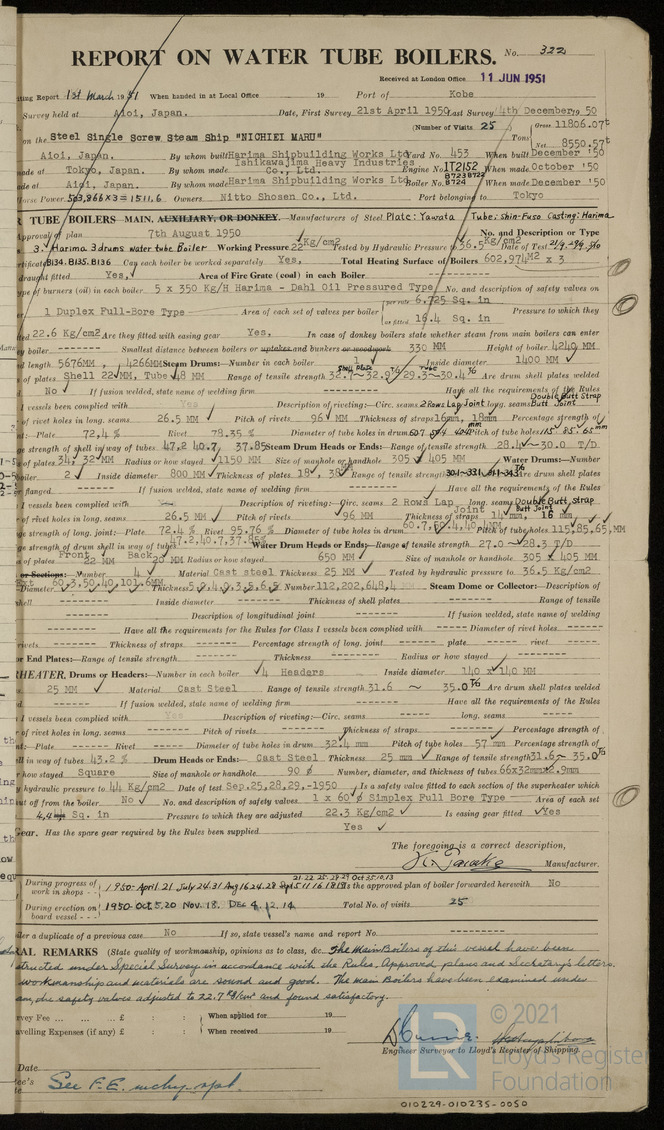 REPORT ON WATER TUBE BOILERS. No. 322
Received at London Office 11 JUN 1951
ting Report 1st March 1951 When handed in at Local Office 19 Port of Kobe
Survey held at Aioi, Japan. Date, First Survey 21st April 1950 Last Survey 14th December 19 50
(Number of Visits 25
on the Steel Single Screw Steam Ship "NICHIEI MARU" Tons Gross 11806.07t
Net 8550.57t
Aioi, Japan. By whom built Harima Shipbuilding Works Ltd Yard No. 453 When built December '50
made at Tokyo, Japan. By whom made Ishikawajima Heavy Industries Co., Ltd. Engine No. 1T2152 When made October '50
ade at Aioi, Japan. By whom made Harima Shipbuilding Works Ltd. Boiler No. 8722 8723 8724 When made December '50
orse Power 503,866x3=1511.6 Owners Nitto Shosen Co., Ltd. Port belonging to Tokyo
TUBE BOILERS—MAIN, AUXILIARY, OR DONKEY.—Manufacturers of Steel Plate: Yawata Tube: Shin-Fuso Casting: Harima
Approval of plan 7th August 1950 No. and Description or Type
3. Harima 3 drums water tube Boiler Working Pressure 22 Kg/cm2 Tested by Hydraulic Pressure to 36.5 Kg/cm2 Date of Test
ertificate B134. B135. B136 Can each boiler be worked separately Yes. Total Heating Surface of Boilers 602,974M2 x 3
draught fitted Yes, Area of Fire Grate (coal) in each Boiler
ype of burners (oil) in each boiler 5 x 350 Kg/H Harima - Dahl Oil Pressured Type No. and description of safety valves on
1 Duplex Full-Bore Type Area of each set of valves per boiler per rule 6.725 Sq. in
as fitted 16.4 Sq. in Pressure to which they
22.6 Kg/cm2 Are they fitted with easing gear Yes. In case of donkey boilers state whether steam from main boilers can enter
y boiler Smallest distance between boilers or uptakes and bunkers or woodwork 330 MM Height of boiler 4240 MM
d length 5676MM, 4266MM Steam Drums:—Number in each boiler 1 Inside diameter 1400 MM
of plates Shell 22 MM, Tube 48 MM Range of tensile strength Shell plate 32.7~32.9 Tube 29.3~30.4 Are drum shell plates welded
No If fusion welded, state name of welding firm Have all the requirements of the Rules
I vessels been complied with Yes Description of riveting:—Circ. seams 2 Rows Lap Joint long. seams Double Butt Strap Butt Joint
of rivet holes in long. seams 26.5 MM Pitch of rivets 96 MM Thickness of straps 16mm, 18mm Percentage strength of
t:—Plate 72,4 % Rivet 78.35 % Diameter of tube holes in drum Pitch of tube holes 115, 85, 65 mm
ge strength of shell in way of tubes 47,2 40.7, 37.85 Steam Drum Heads or Ends:—Range of tensile strength 28.4~30.0 T/D
of plates 34, 32 MM Radius or how stayed 1150 MM Size of manhole or handhole 305 x 405 MM Water Drums:—Number
boiler 2 Inside diameter 800 MM Thickness of plates 18, 38 Range of tensile strength Are drum shell plates
r flanged If fusion welded, state name of welding firm Have all the requirements of the Rules
I vessels been complied with Description of riveting:—Circ. seams 2 Rows Lap Joint long. seams Double Butt, Strap Butt Joint
of rivet holes in long. seams 26.5 MM Pitch of rivets 96 MM Thickness of straps 14mm, 16 mm Percentage
ge strength of long. joint:—Plate 72.4 % Rivet 95,76 % Diameter of tube holes in drum Pitch of tube holes 115,85,65,MM
ge strength of drum shell in way of tubes 47.2,40.7,37.85% Water Drum Heads or Ends:—Range of tensile strength 27.0 ~28.3 T/D
s of plates Front 22 MM Back 20 MM Radius or how stayed 650 MM Size of manhole or handhole 305 x 405 MM
or Sections:—Number 4 Material Cast steel Thickness 25 MM Tested by hydraulic pressure to 36.5 Kg/cm2
Diameter Thickness Number 112,202,648,4 Steam Dome or Collector:—Description of
shell Inside diameter Thickness of shell plates Range of tensile
Description of longitudinal joint If fusion welded, state name of welding
Have all the requirements for the Rules for Class I vessels been complied with Diameter of rivet holes
rivets Thickness of straps Percentage strength of long. joint plate rivet
or End Plates:—Range of tensile strength Thickness Radius or how stayed
HEATER, Drums or Headers:—Number in each boiler 4 Headers Inside diameter 140 x 140 MM
25 MM Material Cast Steel Range of tensile strength 31.6 ~ 35.0 Are drum shell plates welded
If fusion welded, state name of welding firm Have all the requirements of the Rules
I vessels been complied with Yes Description of riveting:—Circ. seams long. seams
of rivet holes in long. seams Pitch of rivets Thickness of straps Percentage strength of
nt:—Plate Rivet Diameter of tube holes in drum 32.4 mm Pitch of tube holes 57 mm Percentage strength of
ll in way of tubes 43.2 % Drum Heads or Ends:— Cast Steel Thickness 25 mm Range of tensile strength 31.6~ 35.0
how stayed Square Size of manhole or handhole 90 ϕ Number, diameter, and thickness of tubes 66x32mmx2.9mm
y hydraulic pressure to 44 Kg/cm2 Date of test Sep.25,28,29,-1950 Is a safety valve fitted to each section of the superheater which
ut off from the boiler No No. and description of safety valves 1 x 60 ϕ Simplex Full Bore Type Area of each set
4,4 Sq. in Pressure to which they are adjusted 22.3 Kg/cm2 Is easing gear fitted Yes
Gear. Has the spare gear required by the Rules been supplied Yes
The foregoing is a correct description,
Manufacturer.
During progress of work in shops - - 1950- April 21 July 24.31 Aug 16 24.28 Sept Is the approved plan of boiler forwarded herewith No
During erection on board vessel - - - 1950 Oct. 5.20 Nov. 18. Dec 4.12.14 Total No. of visits 25
iler a duplicate of a previous case No If so, state vessel's name and report No.
RAL REMARKS (State quality of workmanship, opinions as to class, &c. The Main Boilers of this vessel have been
structed under Special Survey in accordance with the Rules, Approved plans and Secretary's letters
workmanship and materials are sound and good. The main Boilers have been examined under
am, the safety valves adjusted to 22.7 Kg/cm2 and found satisfactory.
rvey Fee ... ... £ : : When applied for 19
avelling Expenses (if any) £ : : When received 19
Engineer Surveyor to Lloyd's Register of Shipping.
Date
ee's
See F.E. mchy. rpt.
LR © 2021
Lloyd's Register
Foundation
010229-010235-0050